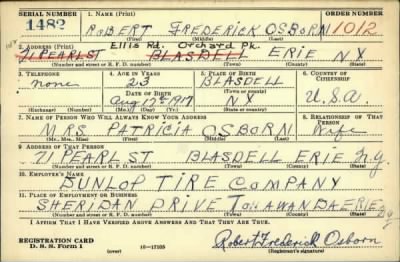 SERIAL NUMBER
1. NAME (Print)
ORDER NUMBER
1482
ROBERT FREDERICK OSBORN
1012
(First) (Middle) (Last)
2. ADDRESS (Print)
Ellis Rd. Orchard Pk.
71 PEARL ST BLASDELL ERIE N.Y.
(Number and street or R. F. D. number) (Town) (County) (State)
3. TELEPHONE
4. AGE IN YEARS
5. PLACE OF BIRTH
6. COUNTRY OF CITIZENSHIP
none
23
BLASDELL
DATE OF BIRTH
(Town or county)
U.S.A.
Aug 12th 1917
N.Y.
(Exchange) (Number)
(Mo.) (Day) (Yr.)
(State or country)
7. NAME OF PERSON WHO WILL ALWAYS KNOW YOUR ADDRESS
8. RELATIONSHIP OF THAT PERSON
MRS PATRICIA OSBORN
Wife
(Mr., Mrs., Miss) (First) (Middle) (Last)
9. ADDRESS OF THAT PERSON
71 PEARL ST BLASDELL ERIE N.Y.
(Number and street or R. F. D. number) (Town) (County) (State)
10. EMPLOYER'S NAME
DUNLOP TIRE COMPANY
11. PLACE OF EMPLOYMENT OR BUSINESS
SHERIDAN DRIVE TONAWANDA ERIE N.Y.
(Number and street or R. F. D. number) (Town) (County) (State)
I AFFIRM THAT I HAVE VERIFIED ABOVE ANSWERS AND THAT THEY ARE TRUE.
REGISTRATION CARD
D. S. S. Form 1
(over)
16-17105
Robert Frederick Osborn
(Registrant's signature)